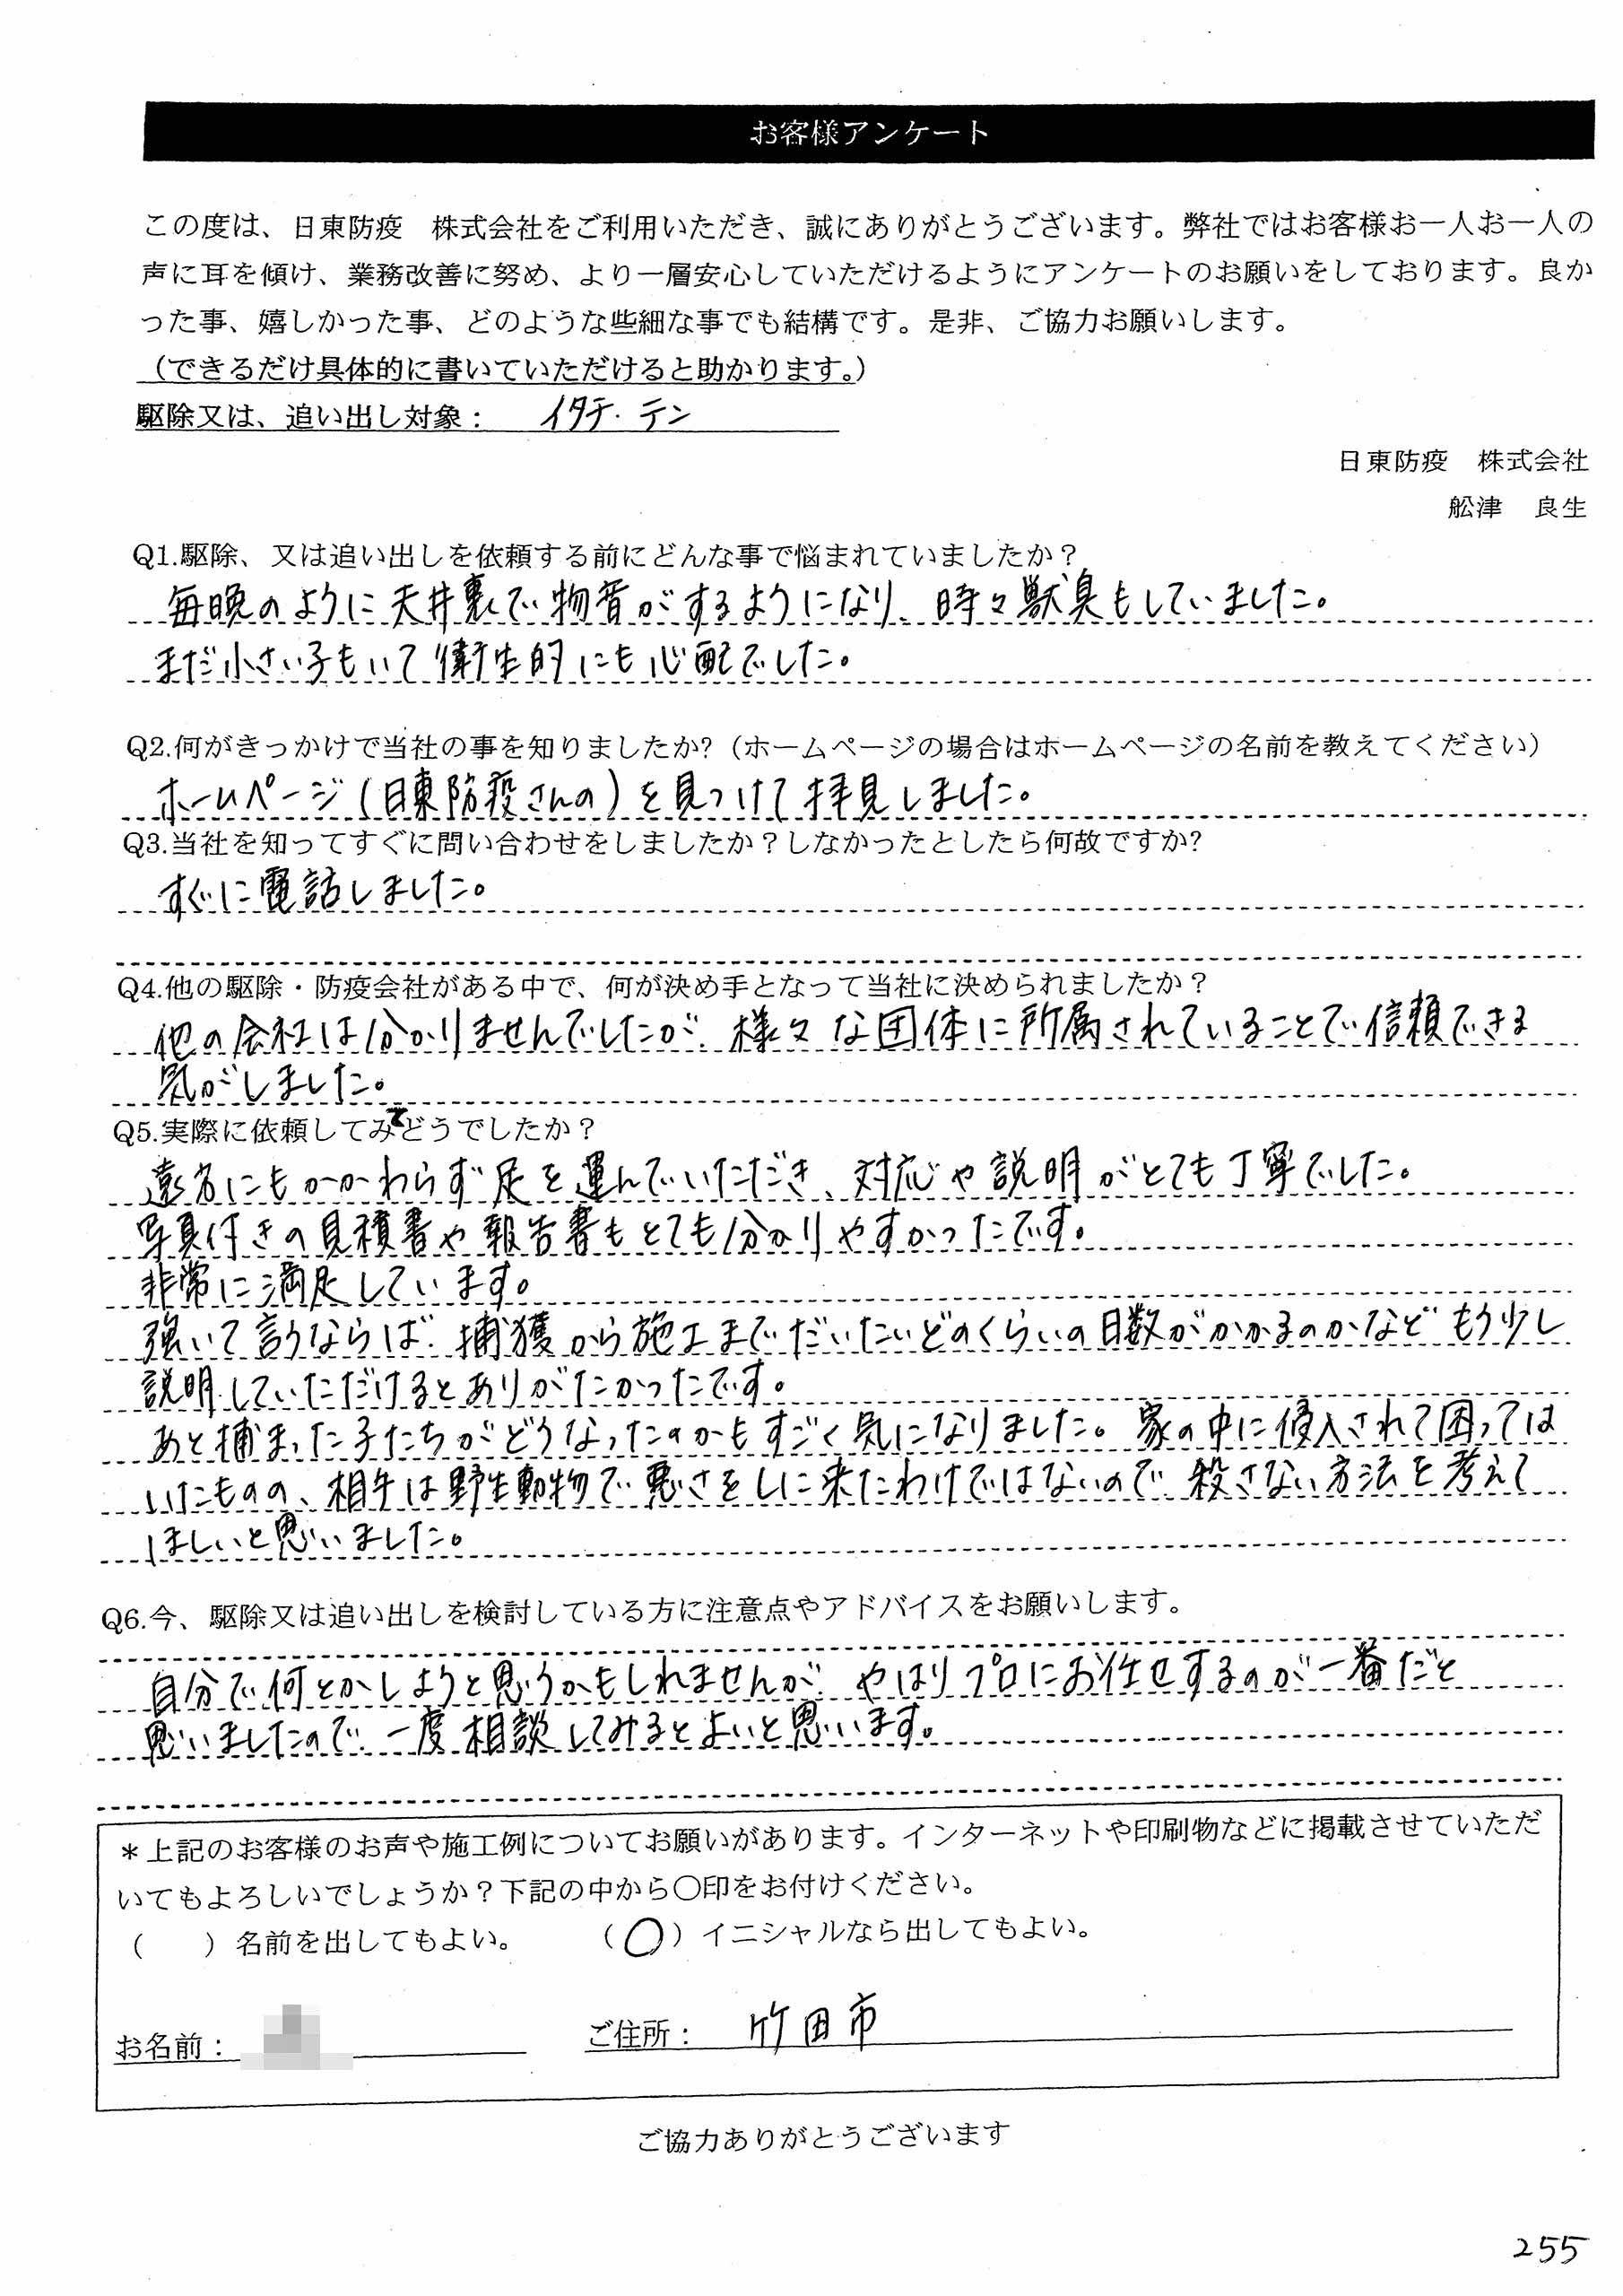 お客様アンケート
この度は、日東防疫　株式会社をご利用いただき、誠にありがとうございます。弊社ではお客様お一人お一人の
声に耳を傾け、業務改善に努め、より一層安心していただけるようにアンケートのお願いをしております。良か
った事、嬉しかった事、どのような些細な事でも結構です。是非、ご協力お願いします。
（できるだけ具体的に書いていただけると助かります。）
駆除又は、追い出し対象： イタチ・テン
日東防疫　株式会社
舩津　良生
Q1.駆除、又は追い出しを依頼する前にどんな事で悩まれていましたか？
毎晩のように天井裏で物音がするようになり、時々獣臭もしていました。
まだ小さい子もいて衛生的にも心配でした。
Q2.何がきっかけで当社の事を知りましたか?（ホームページの場合はホームページの名前を教えてください）
ホームページ（日東防疫さんの）を見つけて拝見しました。
Q3.当社を知ってすぐに問い合わせをしましたか？しなかったとしたら何故ですか?
すぐに電話しました。
Q4.他の駆除・防疫会社がある中で、何が決め手となって当社に決められましたか？
他の会社は分かりませんでしたが、様々な団体に所属されていることで信頼できる
気がしました。
Q5.実際に依頼してみてどうでしたか？
遠方にもかかわらず足を運んでいただき、対応や説明がとても丁寧でした。
写真付きの見積書や報告書もとても分かりやすかったです。
非常に満足しています。
強いて言うならば、捕獲から施工までだいたいどのくらいの日数がかかるのかなどもう少し
説明していただけるとありがたかったです。
あと捕まった子たちがどうなったのかもすごく気になりました。家の中に侵入されて困っては
いたものの、相手は野生動物で悪さをしに来たわけではないので、殺さない方法を考えて
ほしいと思いました。
Q6.今、駆除又は追い出しを検討している方に注意点やアドバイスをお願いします。
自分で何とかしようと思うかもしれませんが、やはりプロにお任せするのが一番だと
思いましたので、一度相談してみるとよいと思います。
＊上記のお客様のお声や施工例についてお願いがあります。インターネットや印刷物などに掲載させていただ
いてもよろしいでしょうか？下記の中から〇印をお付けください。
（　　）名前を出してもよい。　　（〇）イニシャルなら出してもよい。
お名前：　　ご住所： 竹田市
ご協力ありがとうございます
255